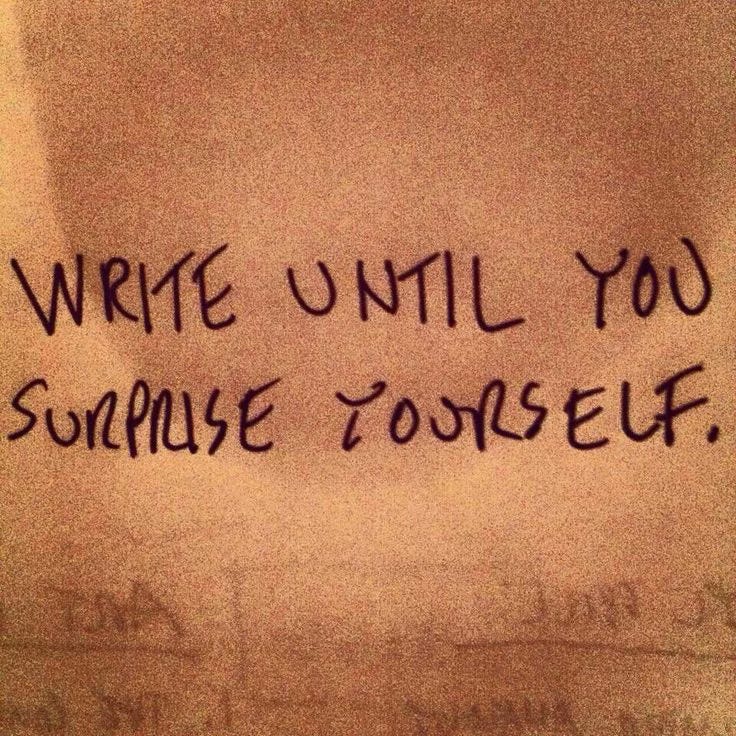 WRITE UNTIL YOU
SURPRISE YOURSELF.
ART